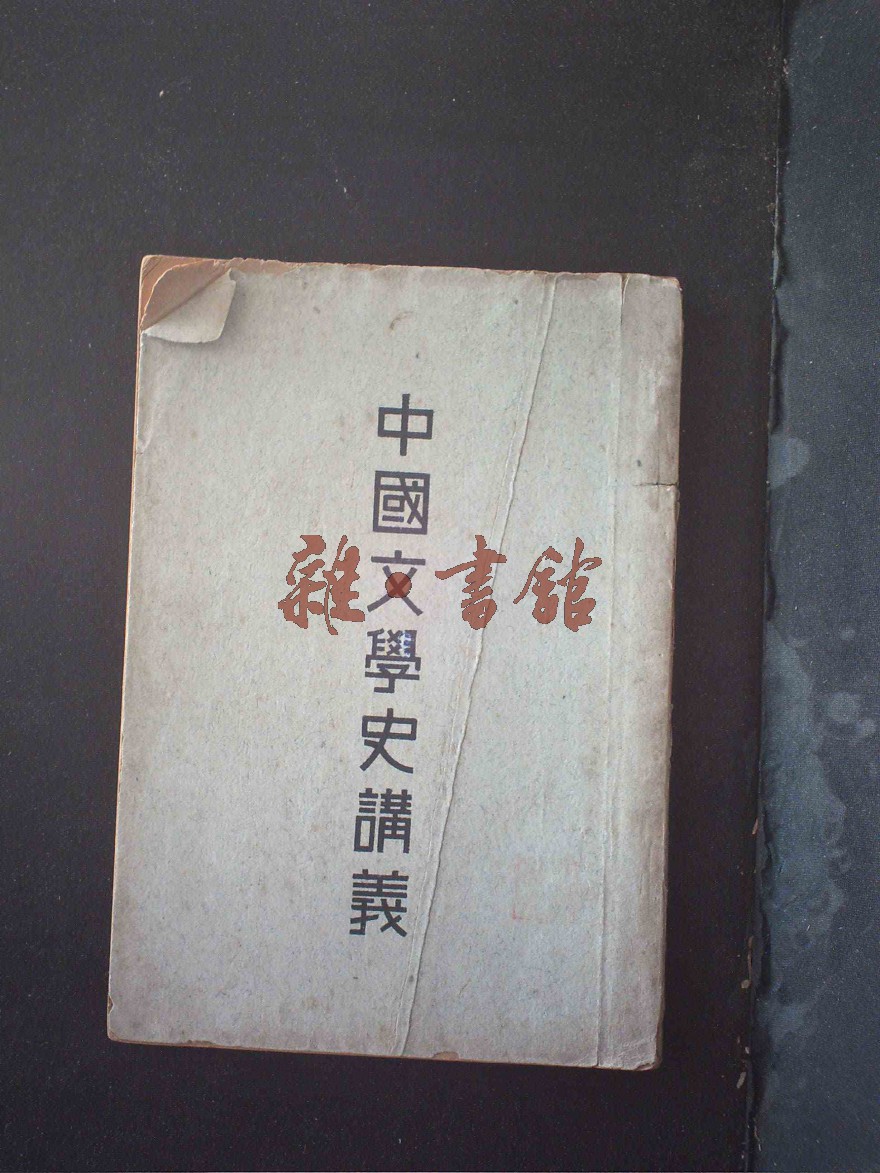 中國文學史講義
雜書館